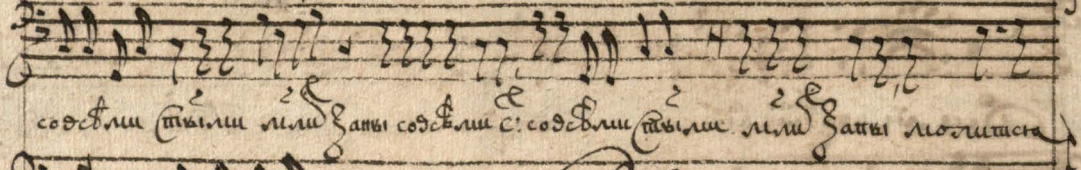 совсѣми ст҃ыми мл҃и за ны совсѣми с: совсѣми ст҃ыми мл҃и за ны молитися